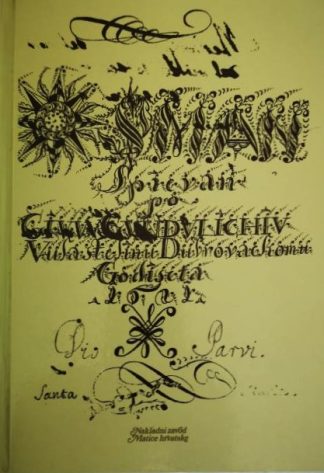 OSMAN
Spievan
po
GIVV GVNDVLICHIV
Vlastelinu Dubrovackomu
Godiscta
Dio Parvi.
Santa
Nakladni zavod
Matice hrvatske